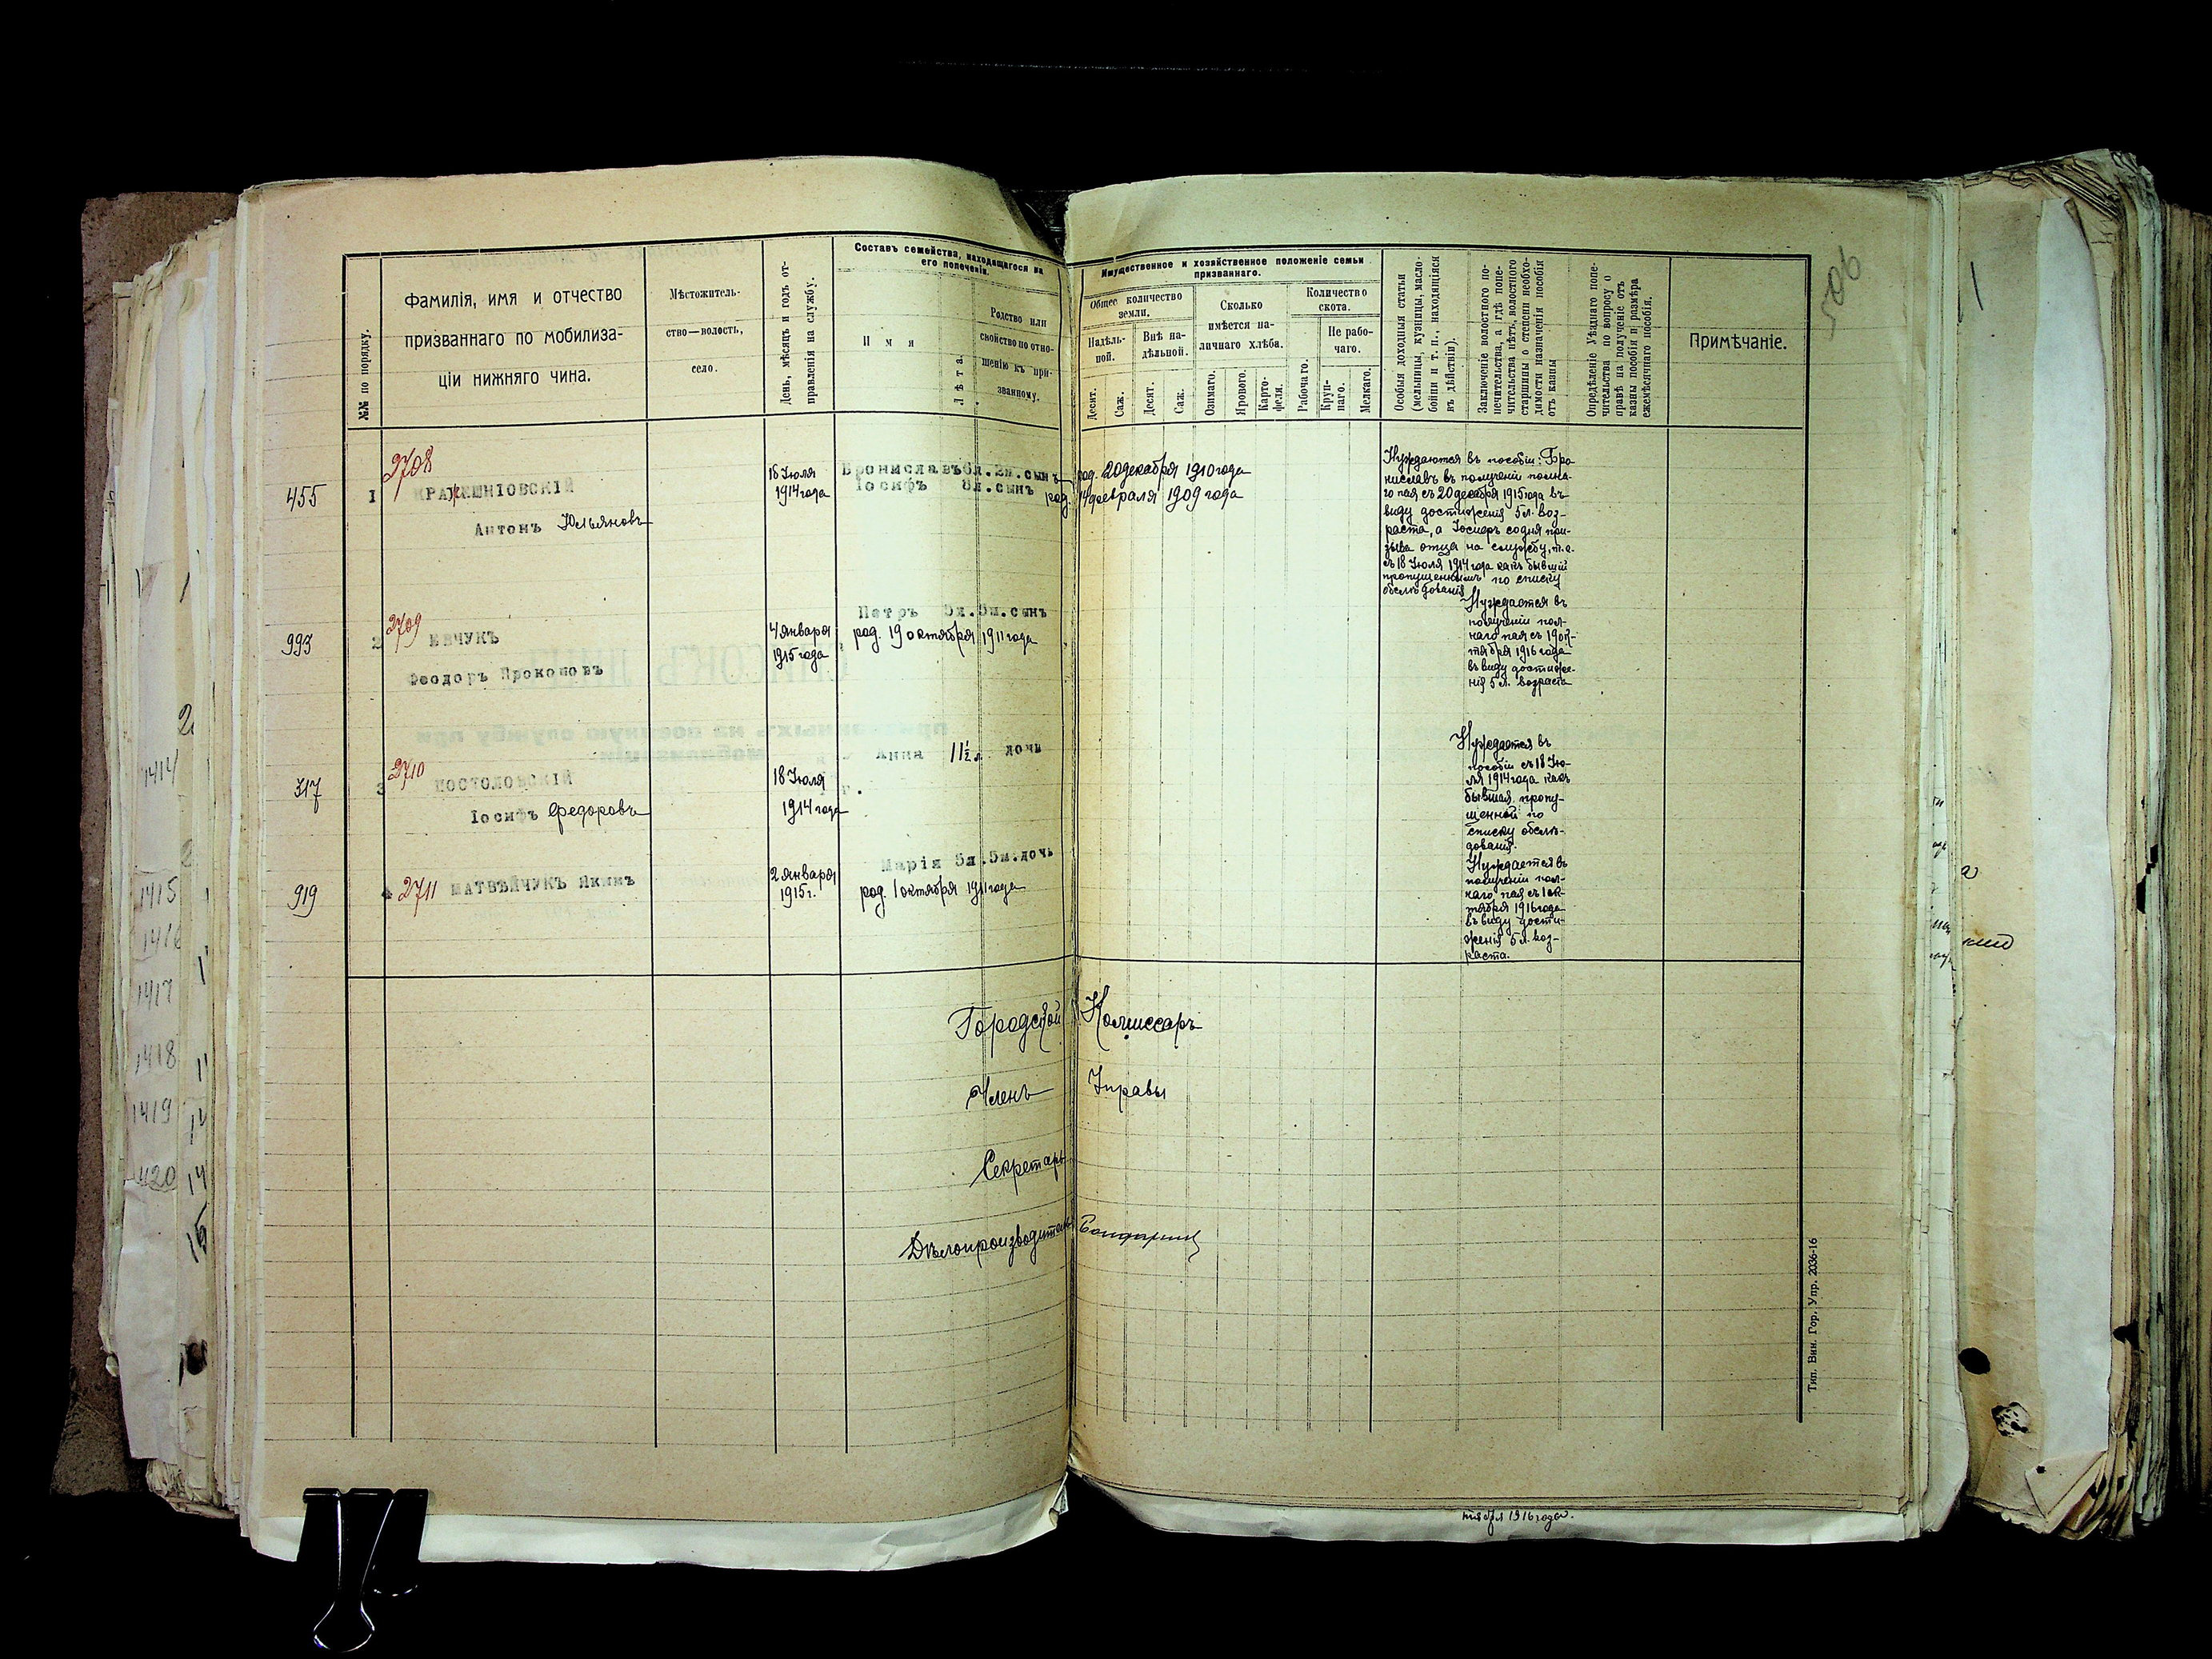 506
№№ по порядку.
Фамилія, имя и отчество
призваннаго по мобилиза-
ціи нижняго чина.
Мѣстожитель-
ство—волость,
село.
День, мѣсяцъ и годъ от-
правленія на службу.
Составъ семейства, находящагося на
его попеченіи.
И м я
Лѣта.
Родство или
свойство по отно-
шенію къ при-
званному.
Имущественное и хозяйственное положеніе семьи
призваннаго.
Общее количество
земли.
Надѣль-
ной.
Внѣ на-
дѣльной.
Десят.
Саж.
Десят.
Саж.
Сколько
имѣется на-
личнаго хлѣба.
Озимаго.
Ярового.
Карто-
феля.
Количество
скота.
Рабочаго.
Не рабо-
чаго.
Круп-
наго.
Мелкаго.
Особыя доходныя статьи
(мельницы, кузницы, масло-
бойни и т. п., находящіяся
въ дѣйствіи).
Заключеніе волостного по-
печительства, а гдѣ попе-
чительства нѣтъ, волостного
старшины о степени необхо-
димости назначенія пособія
отъ казны
Опредѣленіе Уѣзднаго попе-
чительства по вопросу о
правѣ на полученіе отъ
казны пособія и размѣра
ежемѣсячнаго пособія.
Примѣчаніе.
455
1
2708
Антонъ Юльяновъ
18 Іюля
1914 года
Брониславъ 6л. 2м. сынъ род. 20 декабря 1910 года
Іосифъ 8л. сынъ род. 14 февраля 1909 года
Нуждаются въ пособіи: Бро
ниславъ въ полученіи полна-
го пая съ 20 декабря 1915 года въ
виду достиженія 5 л. воз-
раста, а Іосифъ со дня при-
зыва отца на службу, т. е.
съ 18 Іюля 1914 года какъ бывшій
пропущеннымъ по списку
обслѣдованія
993
2
2709
ИВЧУКЪ
Феодоръ Прокоповъ
4 января
1915 года
Петръ 5л. 5м. сынъ
род. 19 октября 1911 года
Нуждается въ
полученіи пол-
наго пая съ 19 ок-
тября 1916 года
въ виду достиже-
нія 5 л. возраста
317
3
2710
ПОСТОЛОВСКІЙ
Іосифъ Федоровъ
18 Іюля
1914 года
Анна 11½ л дочь
Нуждается въ
пособіи съ 18 Ію-
ля 1914 года какъ
бывшая пропу-
щенной по
списку обслѣ-
дованія.
919
4
2711
МАТВѢЙЧУКЪ Якимъ
2 января
1915 г.
Марія 5л. 5м. дочь
род. 1 октября 1911 года
Нуждается въ
полученіи пол-
наго пая съ 1 ок-
тября 1916 года
въ виду дости-
женія 5 л. воз-
раста.
Городской Комиссаръ
Членъ Управы
Секретарь
Дѣлопроизводитель
Тип. Вин. Гор. Упр. 2036-16
тября 1916 года.
1414
1415
1416
1417
1418
1419
420